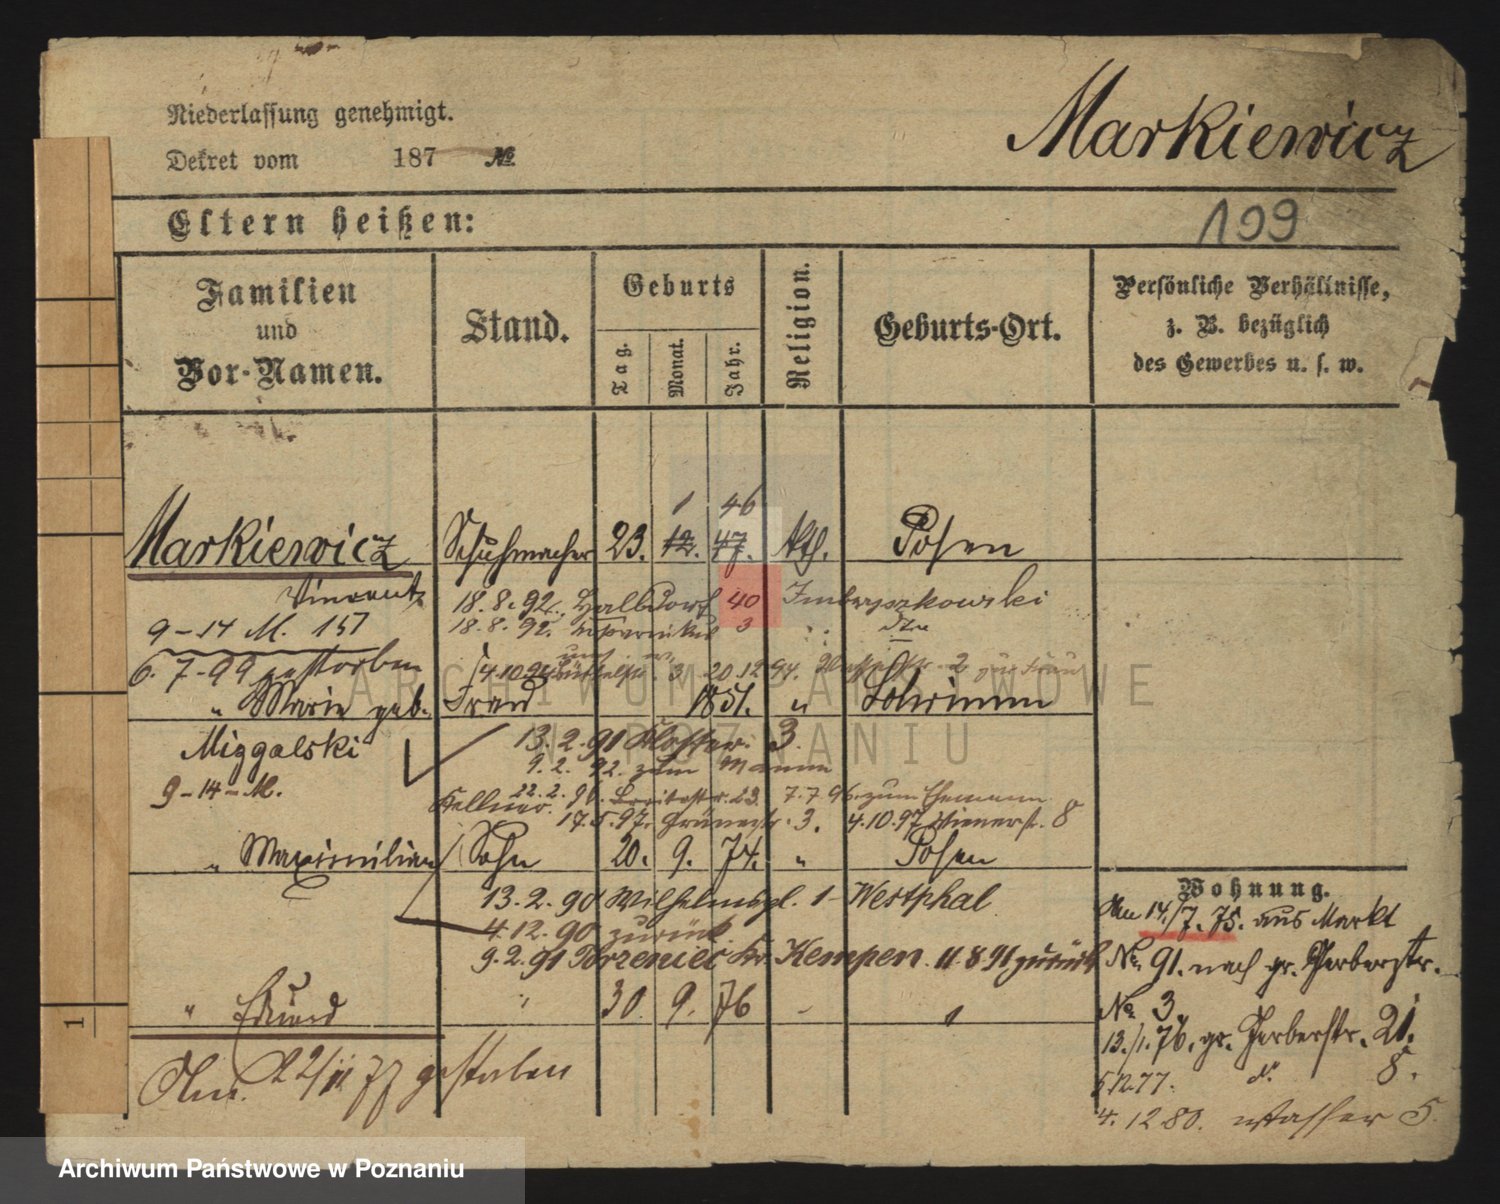 Niederlassung genehmigt.
Dekret vom 187 №
Markiewicz
Eltern heißen:
199
Familien und Vor-Namen.
Stand.
Geburts
Tag.
Monat.
Jahr.
Religion.
Geburts-Ort.
Persönliche Verhältnisse,
z. B. bezüglich
des Gewerbes u. s. w.
1 46
Markiewicz Schuhmacher 23. 12. 47. Kth. Posen
Vincent 18. 8. 92. Halbdorf 40
9-14 M. 157 18. 8. 92. 3 dto
6. 7-99 gestorben 4.10.94 3 20.12.94. 2 zur Frau
" Marie geb. Frau 1851. " Schrimm
Miggalski 13. 2. 91 Kloster. 3.
9. 2. 92. zum Manne
9-14-M. Kellner. 22. 2. 96. Breitestr. 23. 7. 7 96. zum Ehemann
17. 5. 97. Grünestr. 3. 4. 10. 97 Wienerstr. 8
" Maximilian Sohn 20. 9. 74. " Posen
13. 2. 90 Wilhelmspl. 1 - Westphal
4. 12. 90 zurück
9. 2. 91 Torzeniec Kr. Kempen. 11 8 91 zurück
" Eduard " 30. 9. 76
Am 22/11 77 gestorben
Wohnung.
Am 14./7. 75. aus Markt
No. 91. nach gr. Gerberstr.
No. 3.
13./1. 76. gr. Gerberstr. 21.
5.12.77. do 8.
4. 12 80. Wasser 5.
1
ARCHIWUM PAŃSTWOWE
W POZNANIU
Archiwum Państwowe w Poznaniu